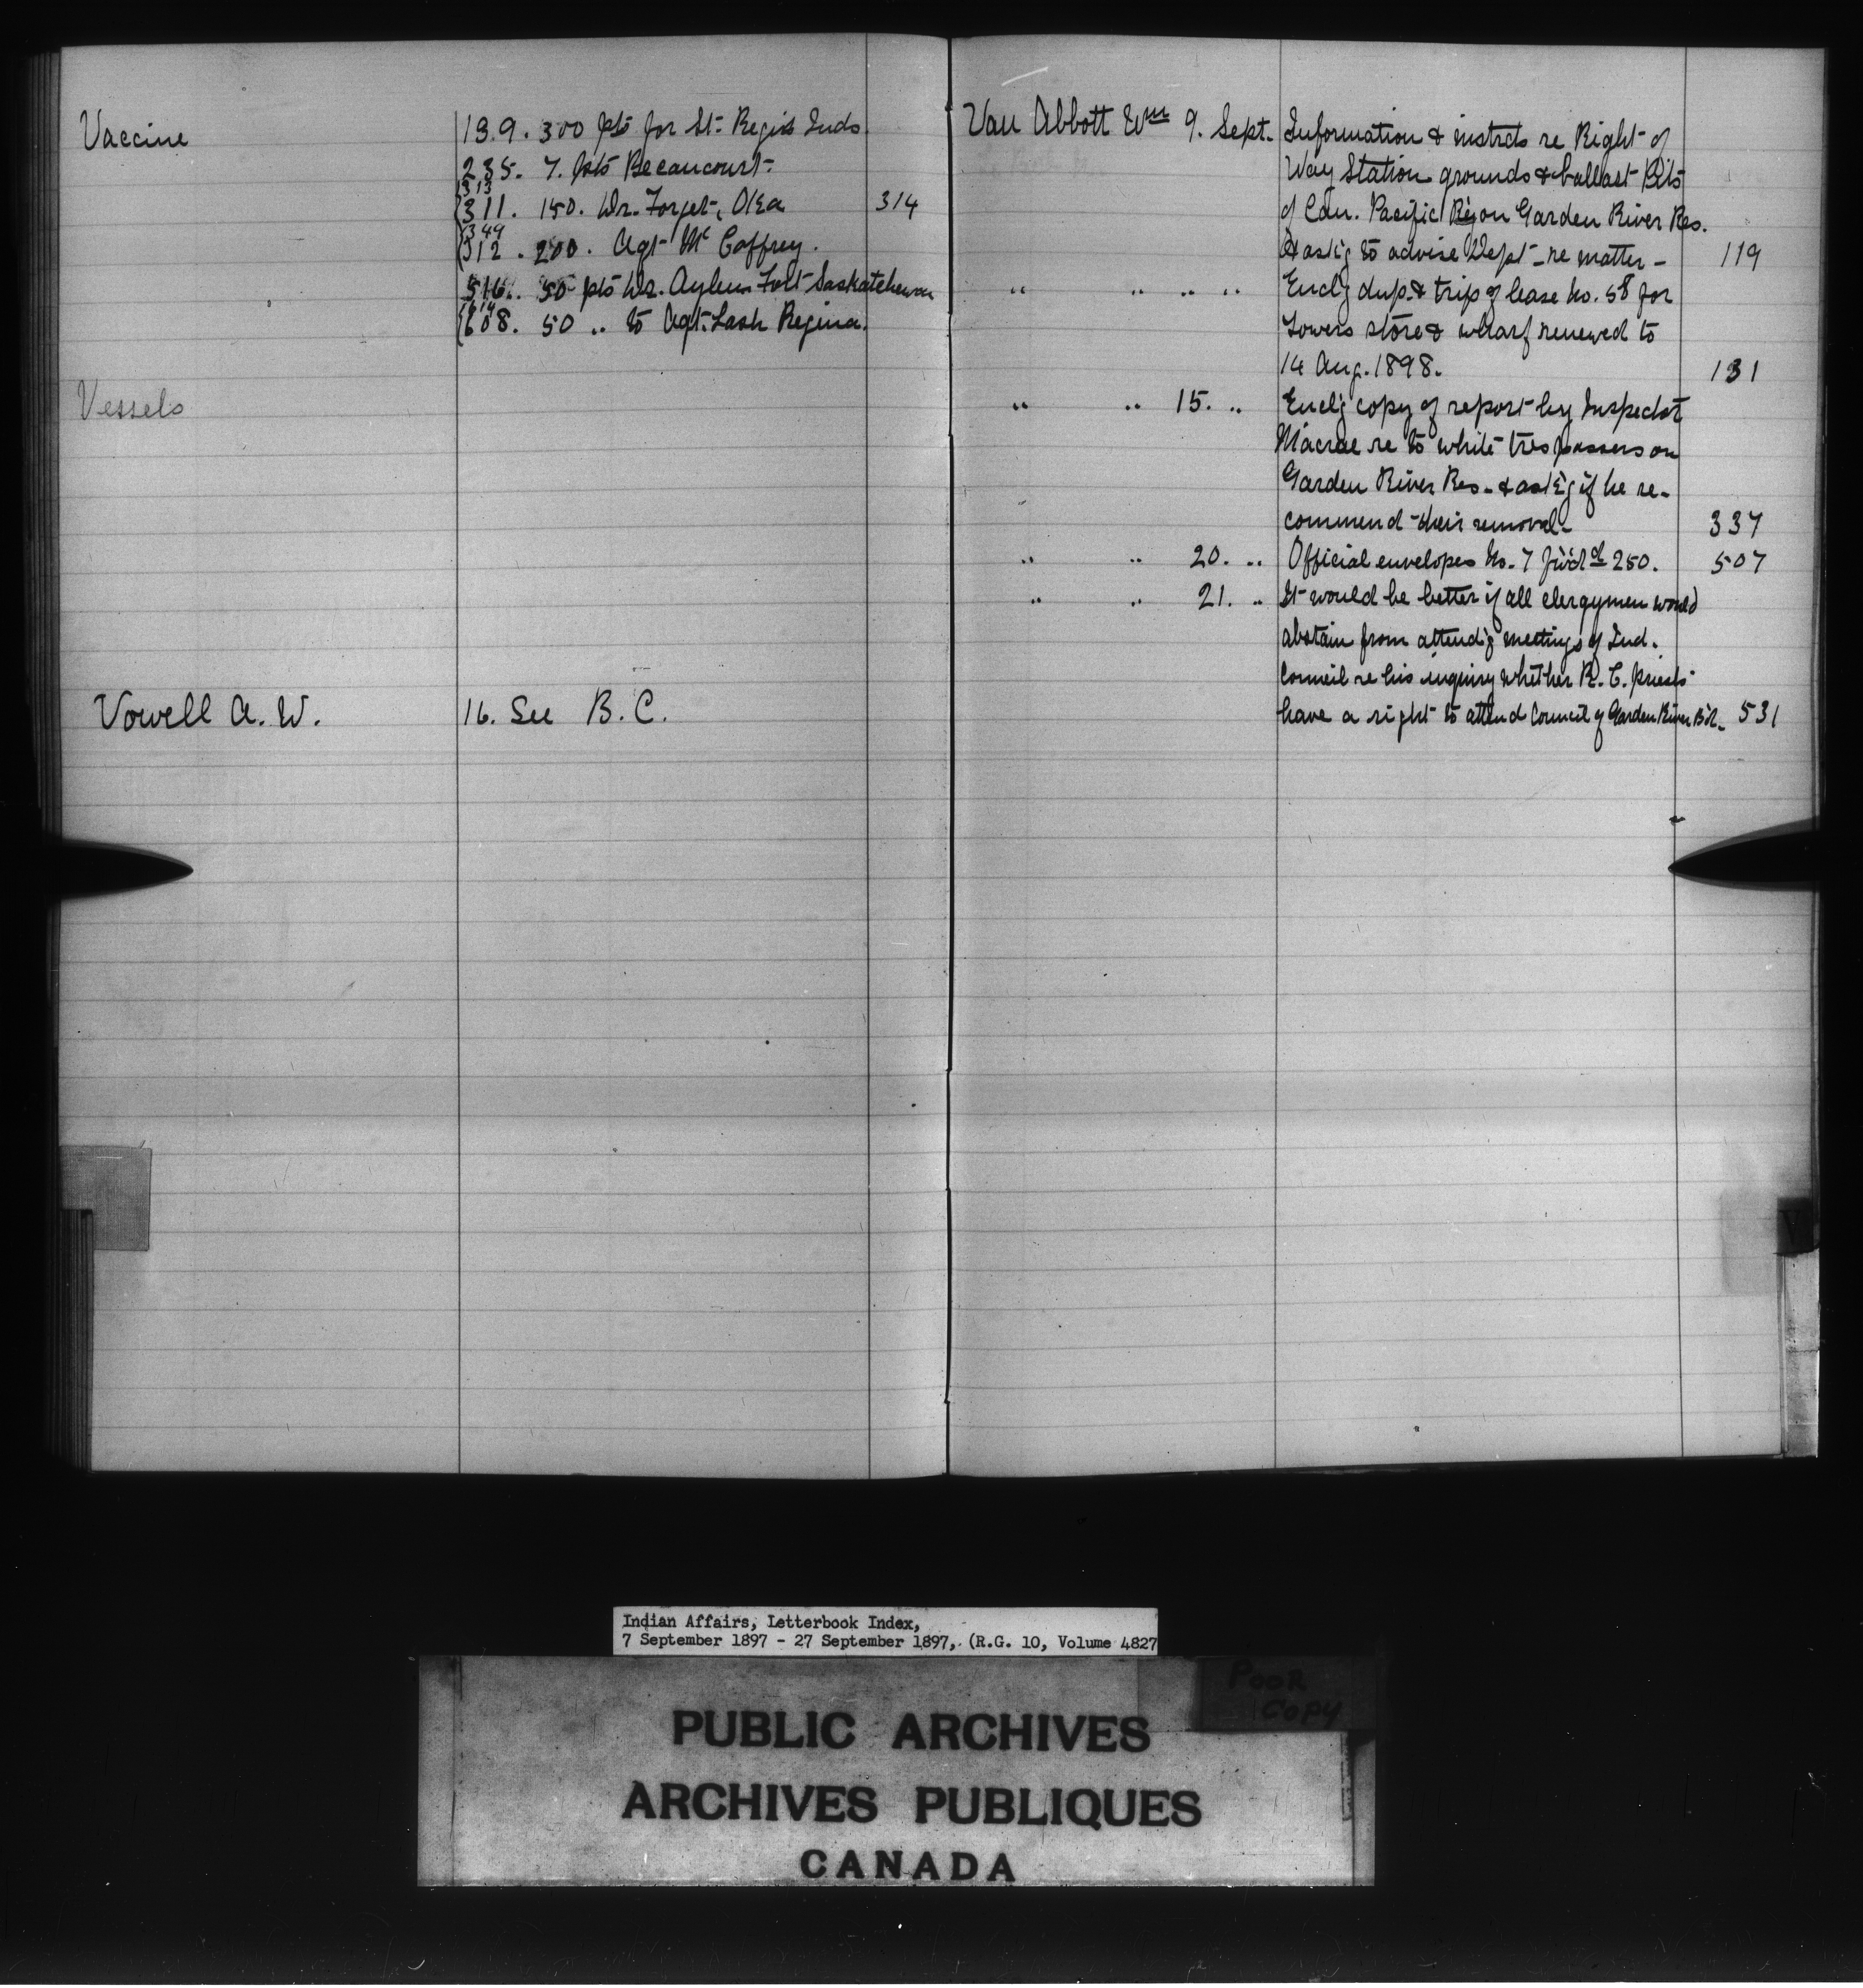 Vaccine
139. 300 pts for St. Regis Inds.
235. 7. pts Becancourt.
313
311. 150. Dr. Forget, Oka 314
349
312. 200. Agt Mc Caffrey.
516. 50 pts Dr. Aylen Fort Saskatchewan
614
608. 50 .. to Agt. Lash Regina.
Vessels
Vowell A. W. 16. See B.C.
Van Abbott Wm 9. Sept. Information & instrcts re Right of
Way Station grounds & ballast Pits
of Can. Pacific Ry on Garden River Res.
& ask'g to advise Dept re matter - 119
" " " " Encl'g dup & trip of lease No. 58 for
Towers store & wharf renewed to
14 Aug. 1898. 131
" " 15. " Encl'g copy of report by Inspector
Macrae re to white trespassers on
Garden River Res. & ask'g if he re-
commend their removal - 337
" " 20. " Official envelopes No. 7 fw'd 250. 507
" " 21. " It would be better if all clergymen would
abstain from attend'g meetings of Ind.
Council re his inquiry whether R. C. priests
have a right to attend Council of Garden River B'd. 531
V
Indian Affairs, Letterbook Index,
7 September 1897 - 27 September 1897, (R.G. 10, Volume 4827
POOR
COPY
PUBLIC ARCHIVES
ARCHIVES PUBLIQUES
CANADA